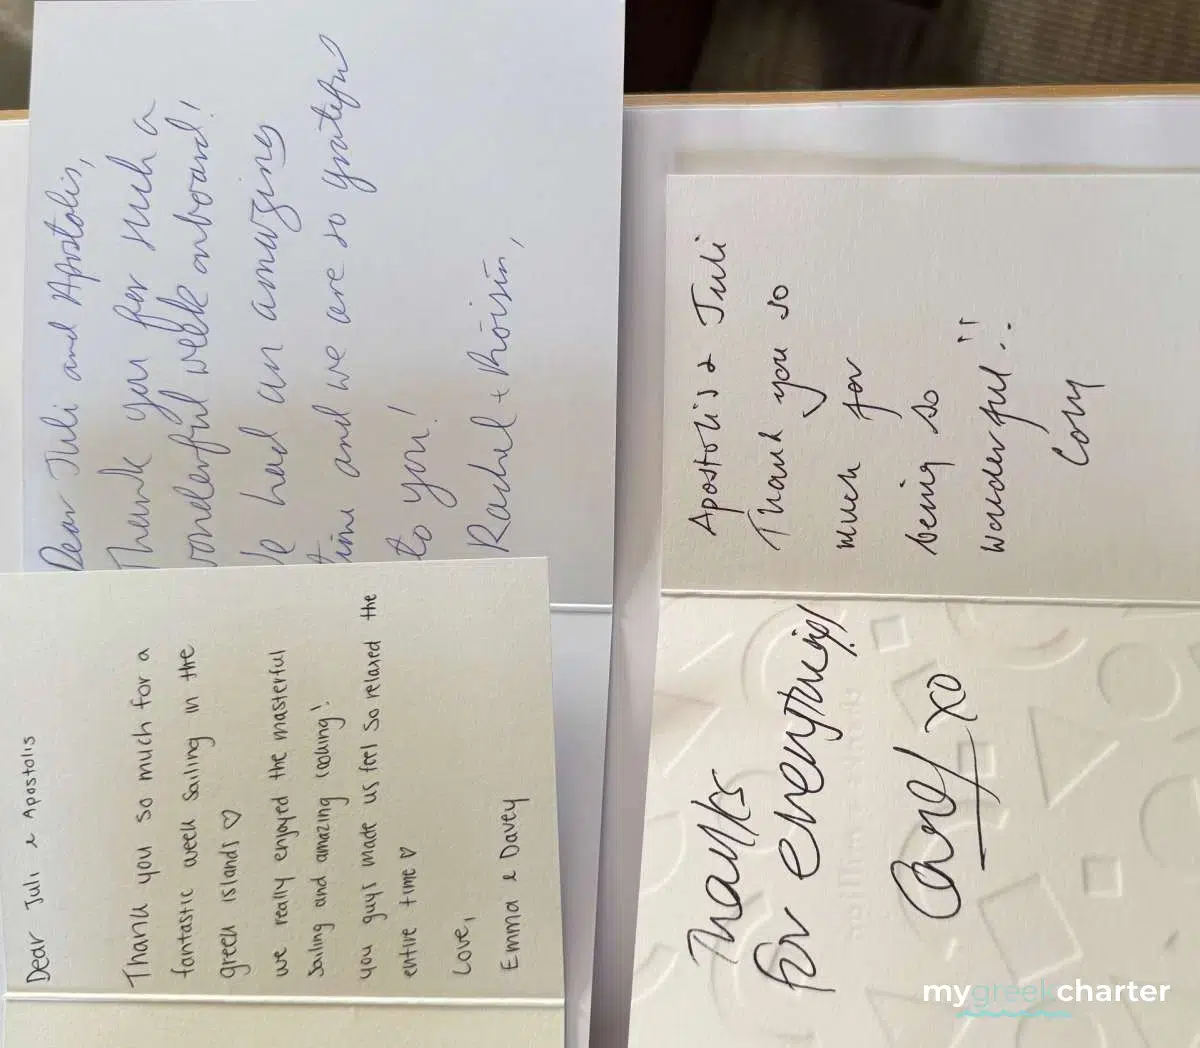 Dear Juli and Apostolis,
Thank you for such a
wonderful week onboard!
e had an amazing
time and we are so grateful
to you!
Rachel + Róisín,
Dear Juli & Apostolis
Thank you so much for a
fantastic week sailing in the
greek islands ♡
we really enjoyed the masterful
sailing and amazing cooking!
you guys made us feel so relaxed the
entire time ♡
Love,
Emma & Davey
Apostolis & Juli
Thank you so
much for
being so
wonderful!!
Thanks
for everything!
xo
mygreekcharter